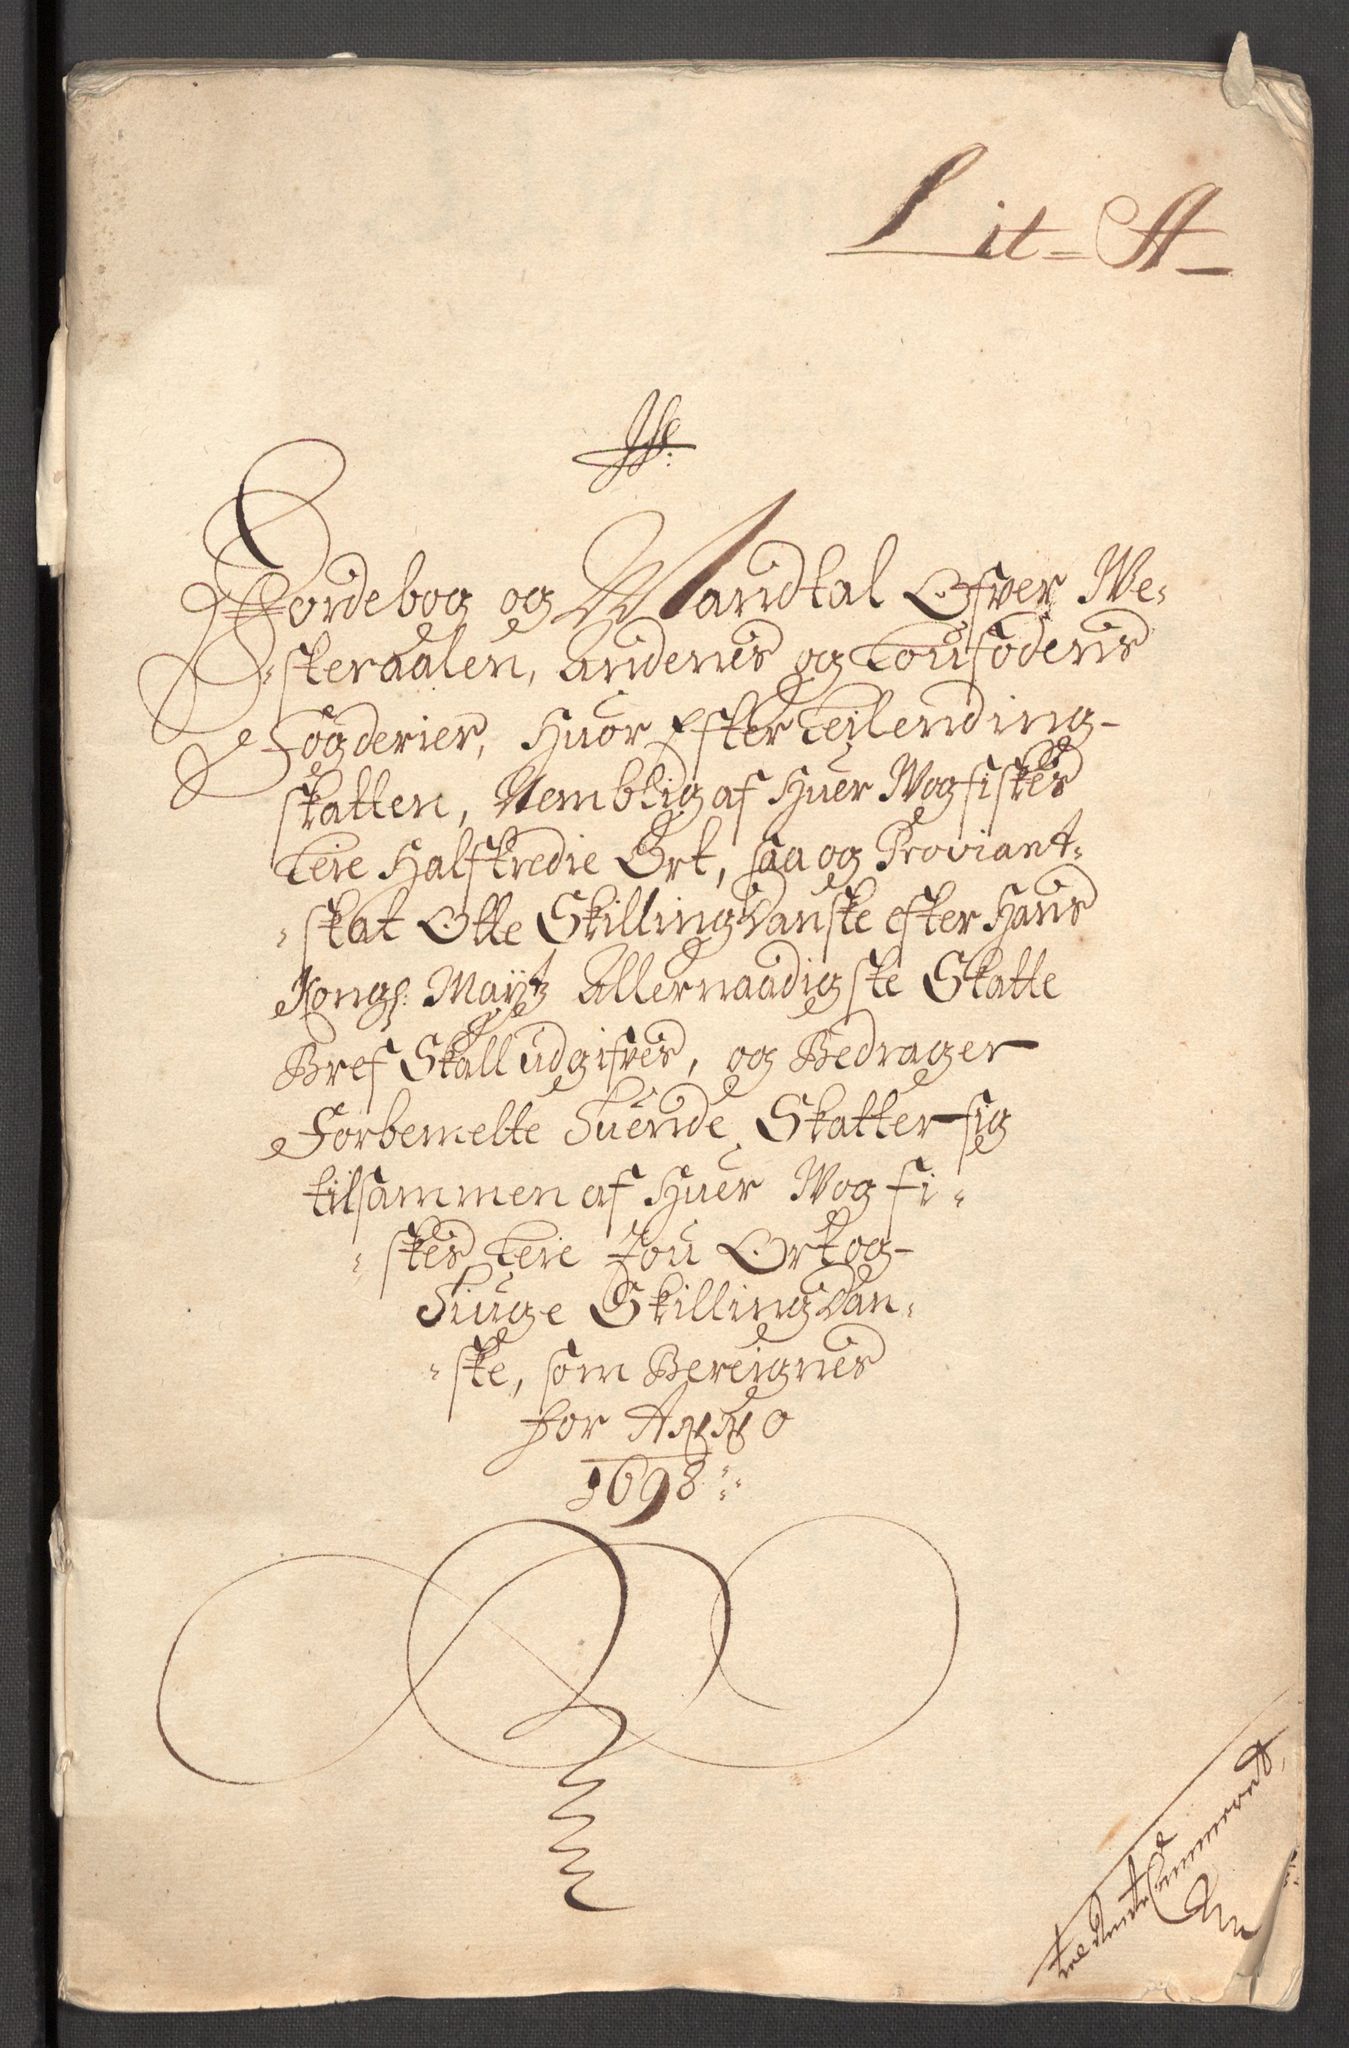 Lit=A
Jordebog og Mandtal Ofver We-
steraalen, Andenes og Toufödens
Fogderier, Huor Efter Leilending-
skatten, Nemblig af Huer Wog fiskes
Leie Halftredie Ort, saa og Proviant-
skat Otte Skilling Danske efter Hans
Kongl: Maytz Allernaadigste Skatte
Bref Skall udgifves, og Bedrager
Forbemelte Tuende Skatter sig
tilsammen af Huer Wog fi-
skes Leie Tou Ort og
Tiuge Skilling Dan-
ske, som Bereignes
for Anno
1698